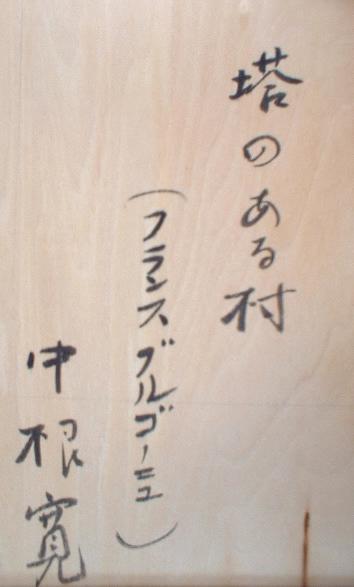 塔のある村
(フランスブルゴーニュ)
中根寛